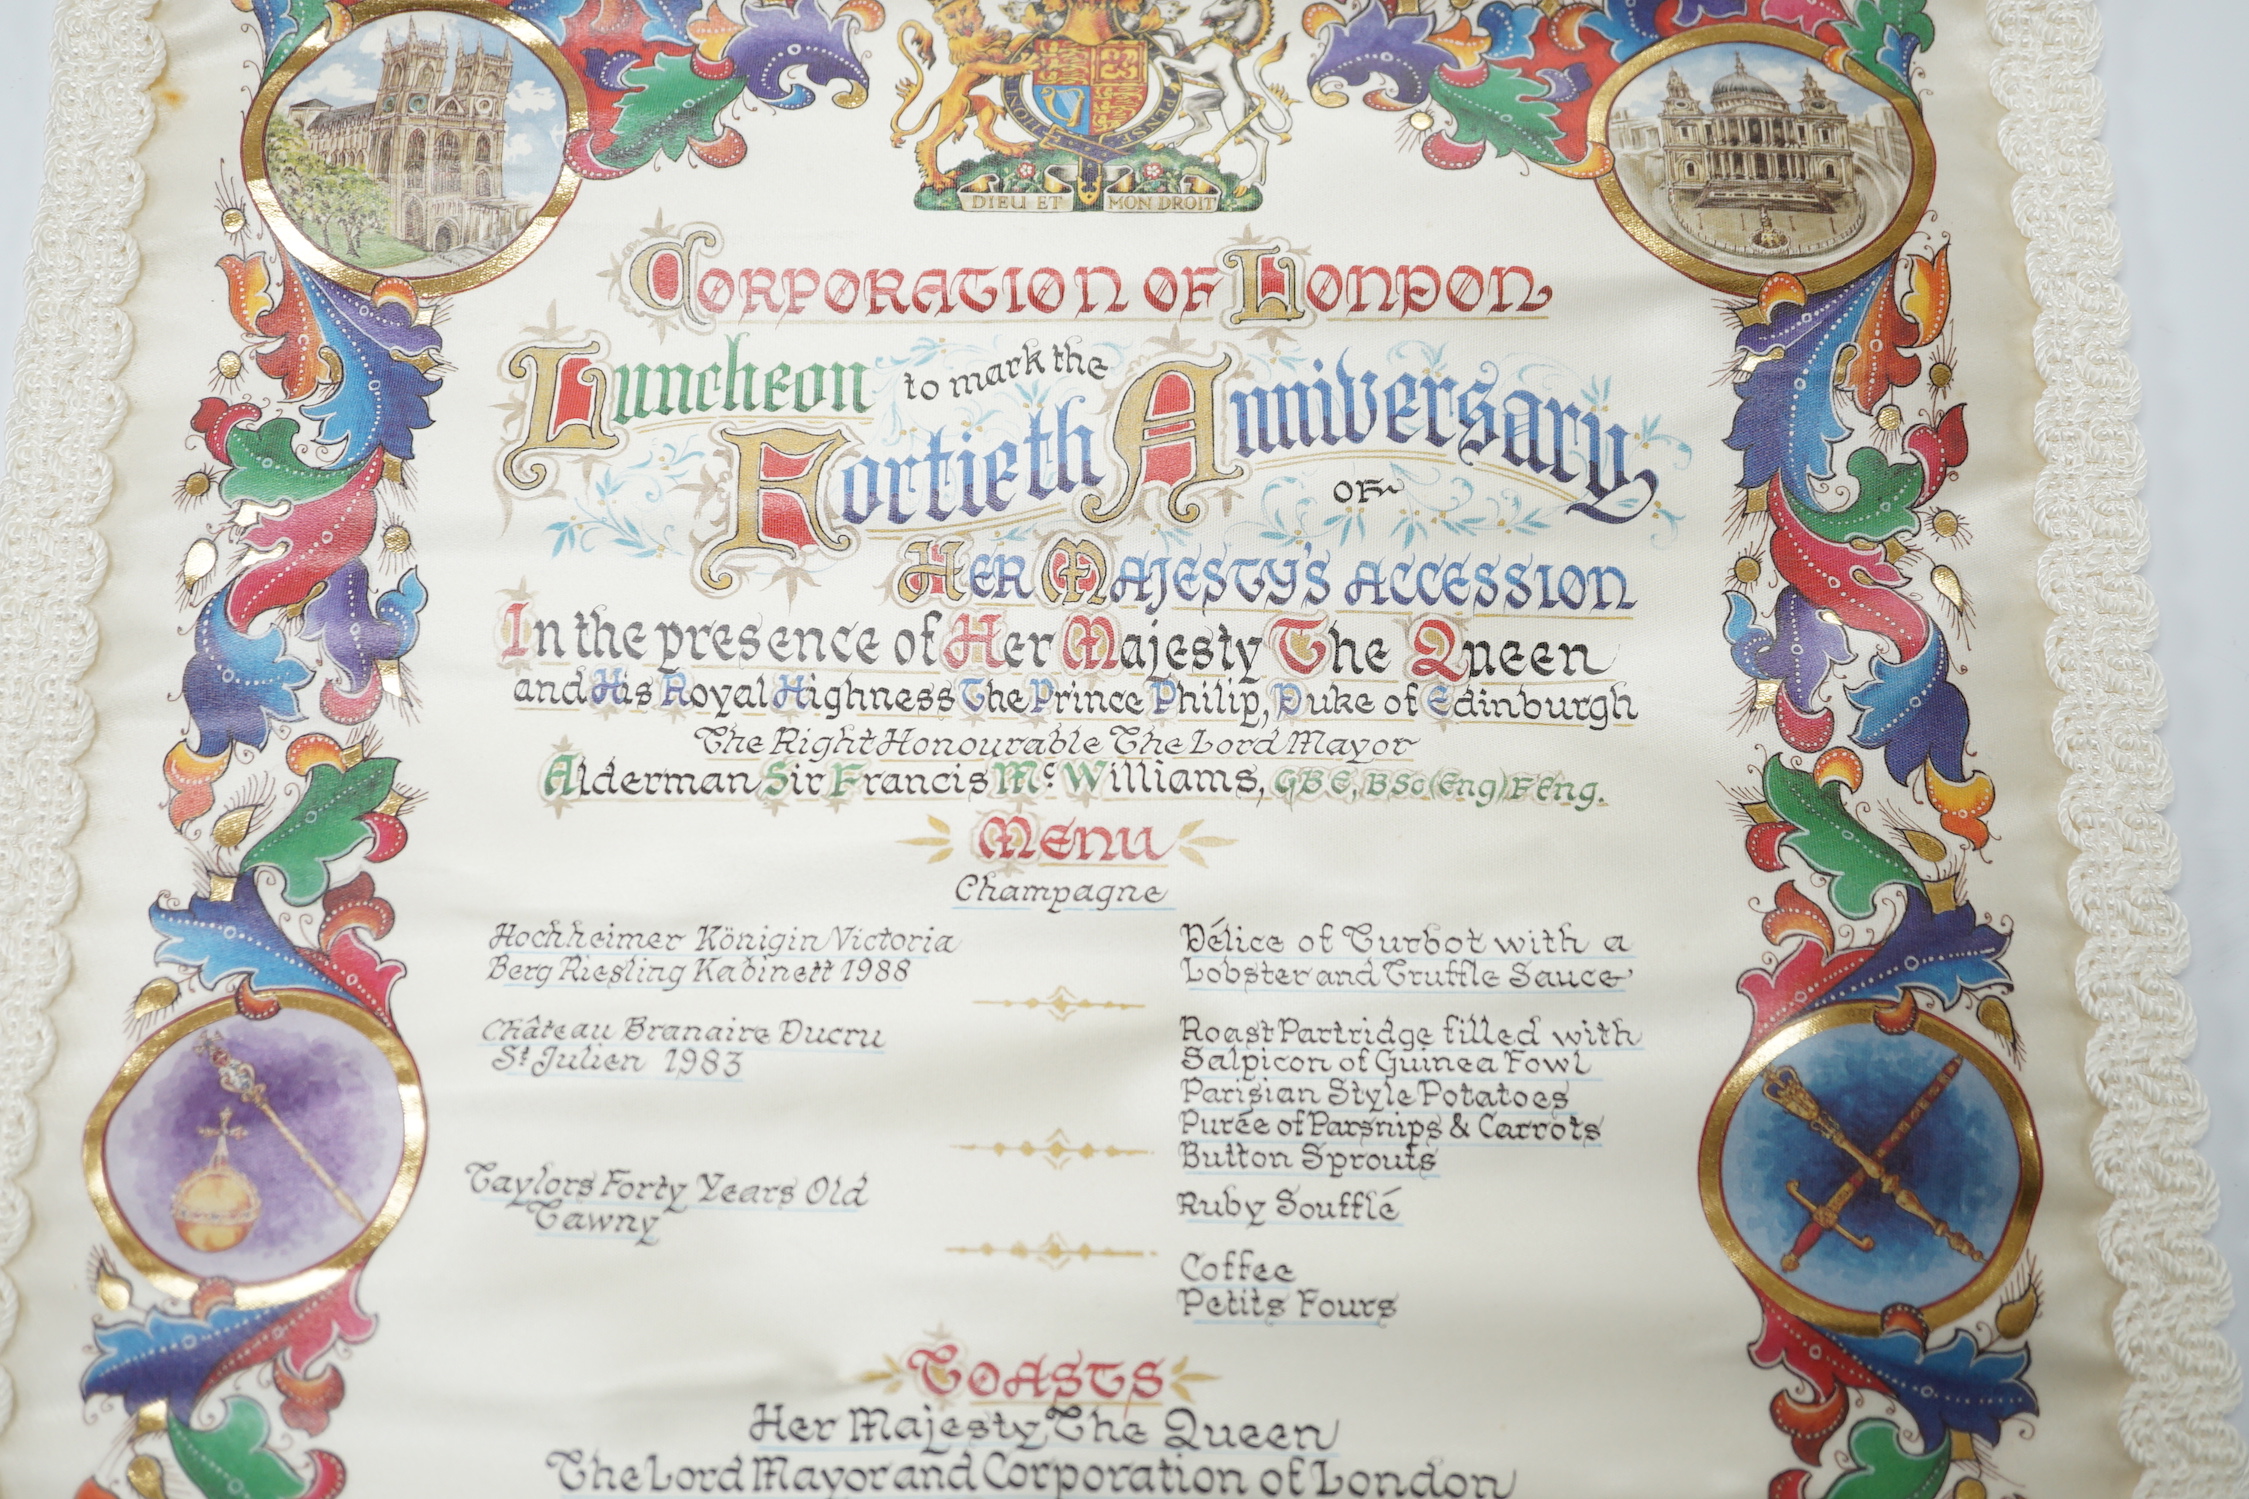 DIEU ET MON DROIT
CORPORATION OF LONDON
Luncheon to mark the
Fortieth Anniversary
OF
HER MAJESTY'S ACCESSION
In the presence of Her Majesty The Queen
and His Royal Highness The Prince Philip, Duke of Edinburgh
The Right Honourable The Lord Mayor
Alderman Sir Francis Mc Williams, GBE, BSc(Eng) FEng.
MENU
Champagne
Hochheimer Königin Victoria
Berg Riesling Kabinett 1988
Délice of Turbot with a
Lobster and Truffle Sauce
Château Branaire Ducru
St Julien 1983
Roast Partridge filled with
Salpicon of Guinea Fowl
Parisian Style Potatoes
Purée of Parsnips & Carrots
Button Sprouts
Taylors Forty Years Old
Tawny
Ruby Soufflé
Coffee
Petits Fours
TOASTS
Her Majesty The Queen
The Lord Mayor and Corporation of London